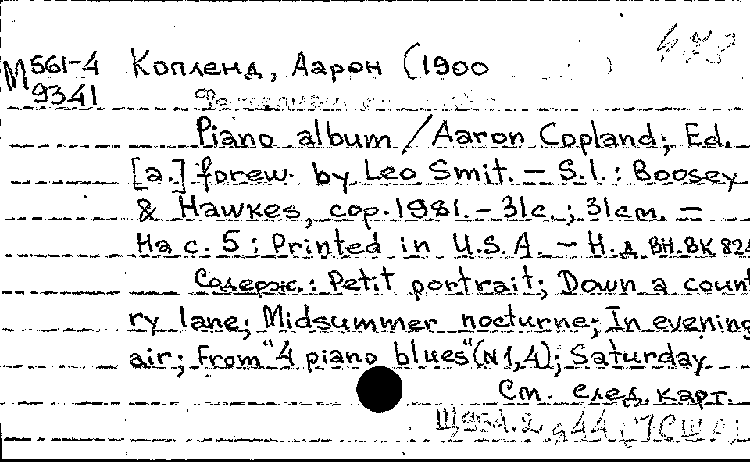 М 561-4 Копленд, Аарон (1900 )
9341
Piano album / Aaron Copland; Ed.
[a.] forew. by Leo Smit. – S.l.: Boosey
& Hawkes, cop. 1981. – 31с.; 31см. –
На с. 5: Printed in U.S.A. – Н.д. ВН.ВК 824
Содерж.: Petit portrait; Down a count
ry lane; Midsummer nocturne; In evening
air; From "4 piano blues" (N1,4); Saturday
См. след. карт.